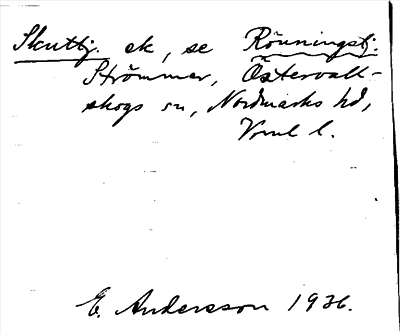 Skuttj. ek, se Rönningstj.
Strömmer, Östervall-
skogs sn, Nordmarks hd,
Vrml l.
E. Andersson 1936.